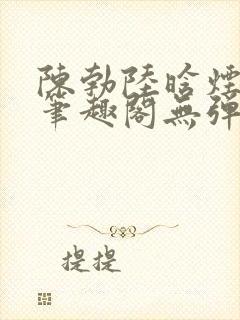 陳勃陸晗煙
筆趣閣無彈
提提